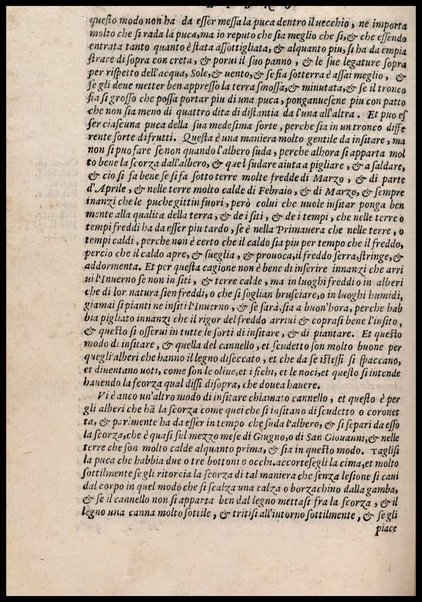 LIBRO
questo modo non ha da esser messa la puca dentro il vecchio, ne importa
molto che si rada la puca, ma io reputo che sia meglio che si, & che essendo
entrata tanto quanto è stata assottigliata, & alquanto piu, si ha da empia
strare di sopra con creta, & porui il suo panno, & le sue legature sopra
per rispetto dell'acqua, Sole, & uento, & se fia sotterra è assai meglio, &
se gli deue metter ben appresso la terra smossa, & minutata, & se il tronco
fia si grosso che possa portar piu di una puca, ponganuesene piu con patto
che non sia meno di quattro dita di distantia da l'una all'altra. Et puo es
ser ciascuna puca della sua medesima sorte, perche sia in un tronco diffe
rente sorte di frutti. Questa è una maniera molto gentile da insitare, ma
non si puo fare se non quando l'albero suda, perche alhora si apparta mol
to bene la scorza dall'albero, & quel sudare aiuta a pigliare, & a saldare,
& cio si fa bene se si fa sotto terre molto fredde di Marzo, & di parte
d'Aprile, & nelle terre molto calde di Febraio, & di Marzo, & sempre
inanzi che le puche gittin fuori, però colui che uuole insitar ponga ben
mente alla qualita della terra, & de i siti, & de i tempi, che nelle terre o
tempi freddi ha da esser piu tardo, se è nella Primauera che nelle terre, o
tempi caldi, perche non è certo che il caldo sia piu per tempo che il freddo,
percio che il caldo apre, & sueglia, & prouoca, il freddo serra, stringe, &
addormenta. Et per questa cagione non è bene di inserire innanzi che arri
ui l'Inuerno se non in siti, & terre calde, ma in luoghi freddi o in alberi
che di lor natura sien freddi, o che si soglian brusciare, o in luoghi humidi,
giamai si pianti ne insiti l'Inuerno, & se farà, sia a buon'hora, perche hab
bia pigliato innanzi che il rigor del freddo arriui & coprasi bene l'insito,
& questo si osserui in tutte le sorti di insitare, & di piantare. Et questo
modo di insitare, & quella del cannello, et scudetto son molto buone per
quegli alberi che hanno il legno diseccato, et che da se istessi si spaccano,
et diuentano uoti, come son le oliue, et i fichi, et le noci, et questo s'intende
hauendo la scorza qual dissi disopra, che douea hauere.
Vi è anco un'altro modo di insitare chiamato cannello, et questo è per
gli alberi che hā la scorza come quei che si insitano di scudetto o coronet
ta, & parimente ha da esser in tempo che suda l'albero, & si separi da esso
la scorza, che è quasi sul mezzo mese di Giugno, o di San Giouanni, & nelle
terre che son molto calde alquanto prima, & sia in questo modo. Taglisi
la puca che habbia due o tre bottoni o occhi. accortesegli la cima, et molto
sottilmente se gli ritorcia la scorza di tal maniera che senza lesione si caui
dal corpo in quel modo che si scalza una calza o borzachino dalla gamba,
& se il cannello non si apparta ben dal legno mettasi fra la scorza, & il
legno una canna molto sottile, & tritisi all'intorno sottilmente, & se gli
piace